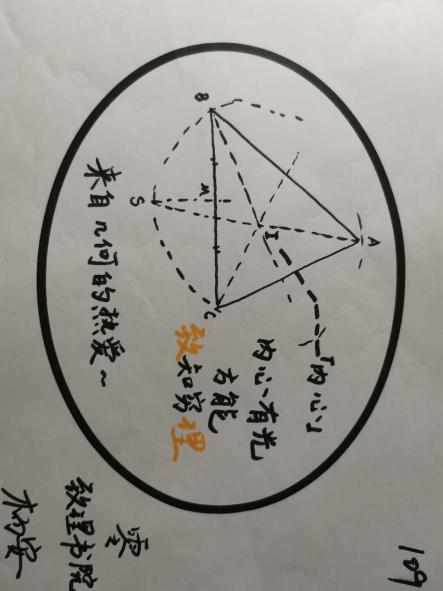 109
A
「内心」
I
内心有光
方能
致知穷理
B
M
C
S
来自几何的热爱~
致理书院